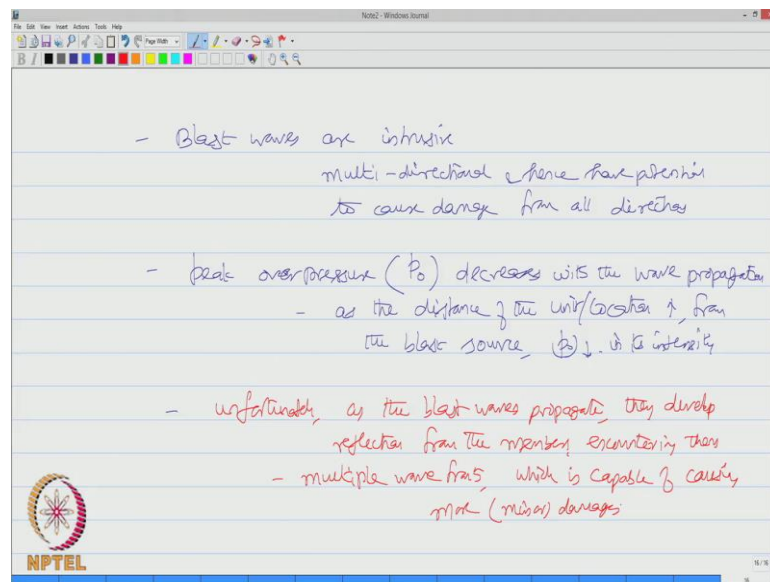 Note2 - Windows Journal
File Edit View Insert Actions Tools Help
Page Width
B I
- Blast waves are intrusive
multi-directional & hence have potential
to cause damage from all directions
- peak overpressure (P₀) decreases with the wave propagation
- as the distance of the unit/location ↑, from
the blast source, (p₀)↓ in its intensity
- unfortunately, as the blast waves propagate, they develop
reflection from the members encountering them
- multiple wave fronts, which is capable of causing
more (minor) damages.
NPTEL
16 / 16
16